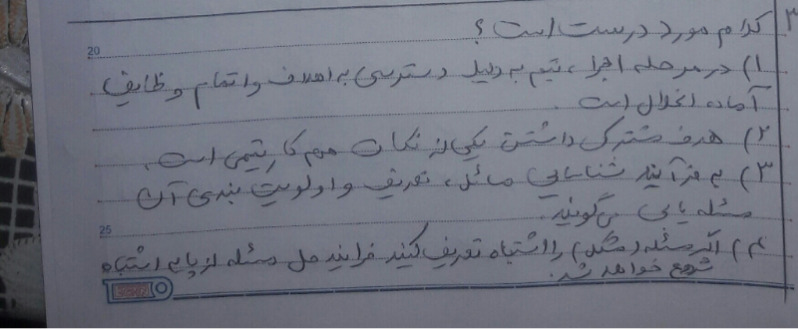 ۳ کدام مورد درست است؟
20
۱) در مرحله اجرا، تیم به دلیل دسترسی به اهداف و اتمام وظایف
آماده انحلال است.
۲) هدف مشترک داشتن یکی از نکات مهم کار تیمی است.
۳) به فرآیند شناسایی مسائل، تعریف و اولویت بندی آن
مسئله یابی می‌گویند.
25
۴) اگر مسئله (مشکل) را اشتباه تعریف کنید فرایند حل مسئله از پایه اشتباه
شروع خواهد شد.